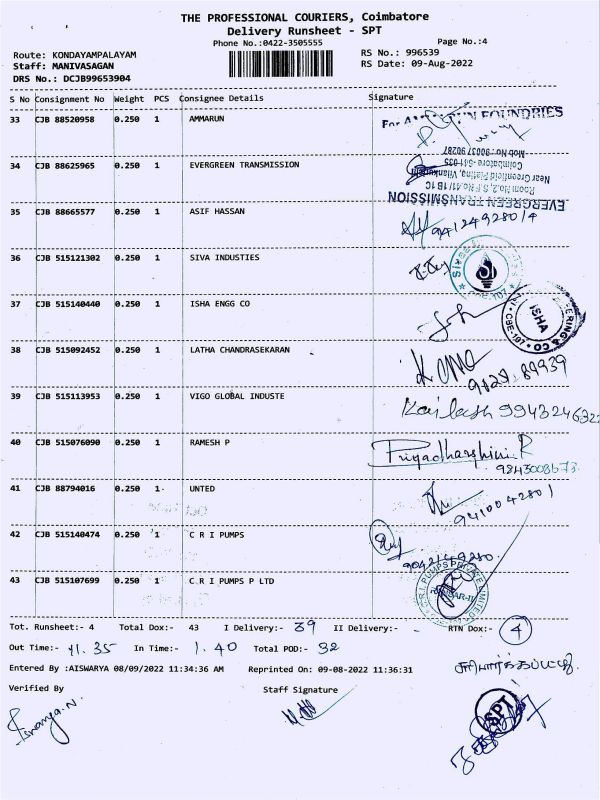 THE PROFESSIONAL COURIERS, Coimbatore
Delivery Runsheet - SPT
Phone No.:0422-3505555 Page No.:4
Route: KONDAYAMPALAYAM RS No.: 996539
Staff: MANIVASAGAN RS Date: 09-Aug-2022
DRS No.: DCJB99653904
S No Consignment No Weight PCS Consignee Details Signature
33 CJB 88520958 0.250 1 AMMARUN
FOUNDRIES
34 CJB 88625965 0.250 1 EVERGREEN TRANSMISSION
EVERGREEN TRANSMISSION
Room No.2, S F No.41/1B 1C
Near Greenfield Plating, Vilankurichi
Coimbatore - 641 035
Mob No : 90037 90287
35 CJB 88665577 0.250 1 ASIF HASSAN
9412492801/4
36 CJB 515121302 0.250 1 SIVA INDUSTIES
37 CJB 515140440 0.250 1 ISHA ENGG CO
ISHA
CBE-107
38 CJB 515092452 0.250 1 LATHA CHANDRASEKARAN
39 CJB 515113953 0.250 1 VIGO GLOBAL INDUSTE
Kailash 9943246322
40 CJB 515076090 0.250 1 RAMESH P
Priyadharshini. R
41 CJB 88794016 0.250 1 UNTED
9410042801
42 CJB 515140474 0.250 1 C R I PUMPS
9042149280
43 CJB 515107699 0.250 1 C R I PUMPS P LTD
C.R.I. PUMPS PRIVATE LIMITED
Tot. Runsheet:- 4 Total Dox:- 43 I Delivery:- 39 II Delivery:- RTN Dox:- 4
Out Time:- 11.35 In Time:- 1.40 Total POD:- 32
Entered By :AISWARYA 08/09/2022 11:34:36 AM Reprinted On: 09-08-2022 11:36:31
சரிபார்க்கப்பட்டது.
Verified By Staff Signature
SPT